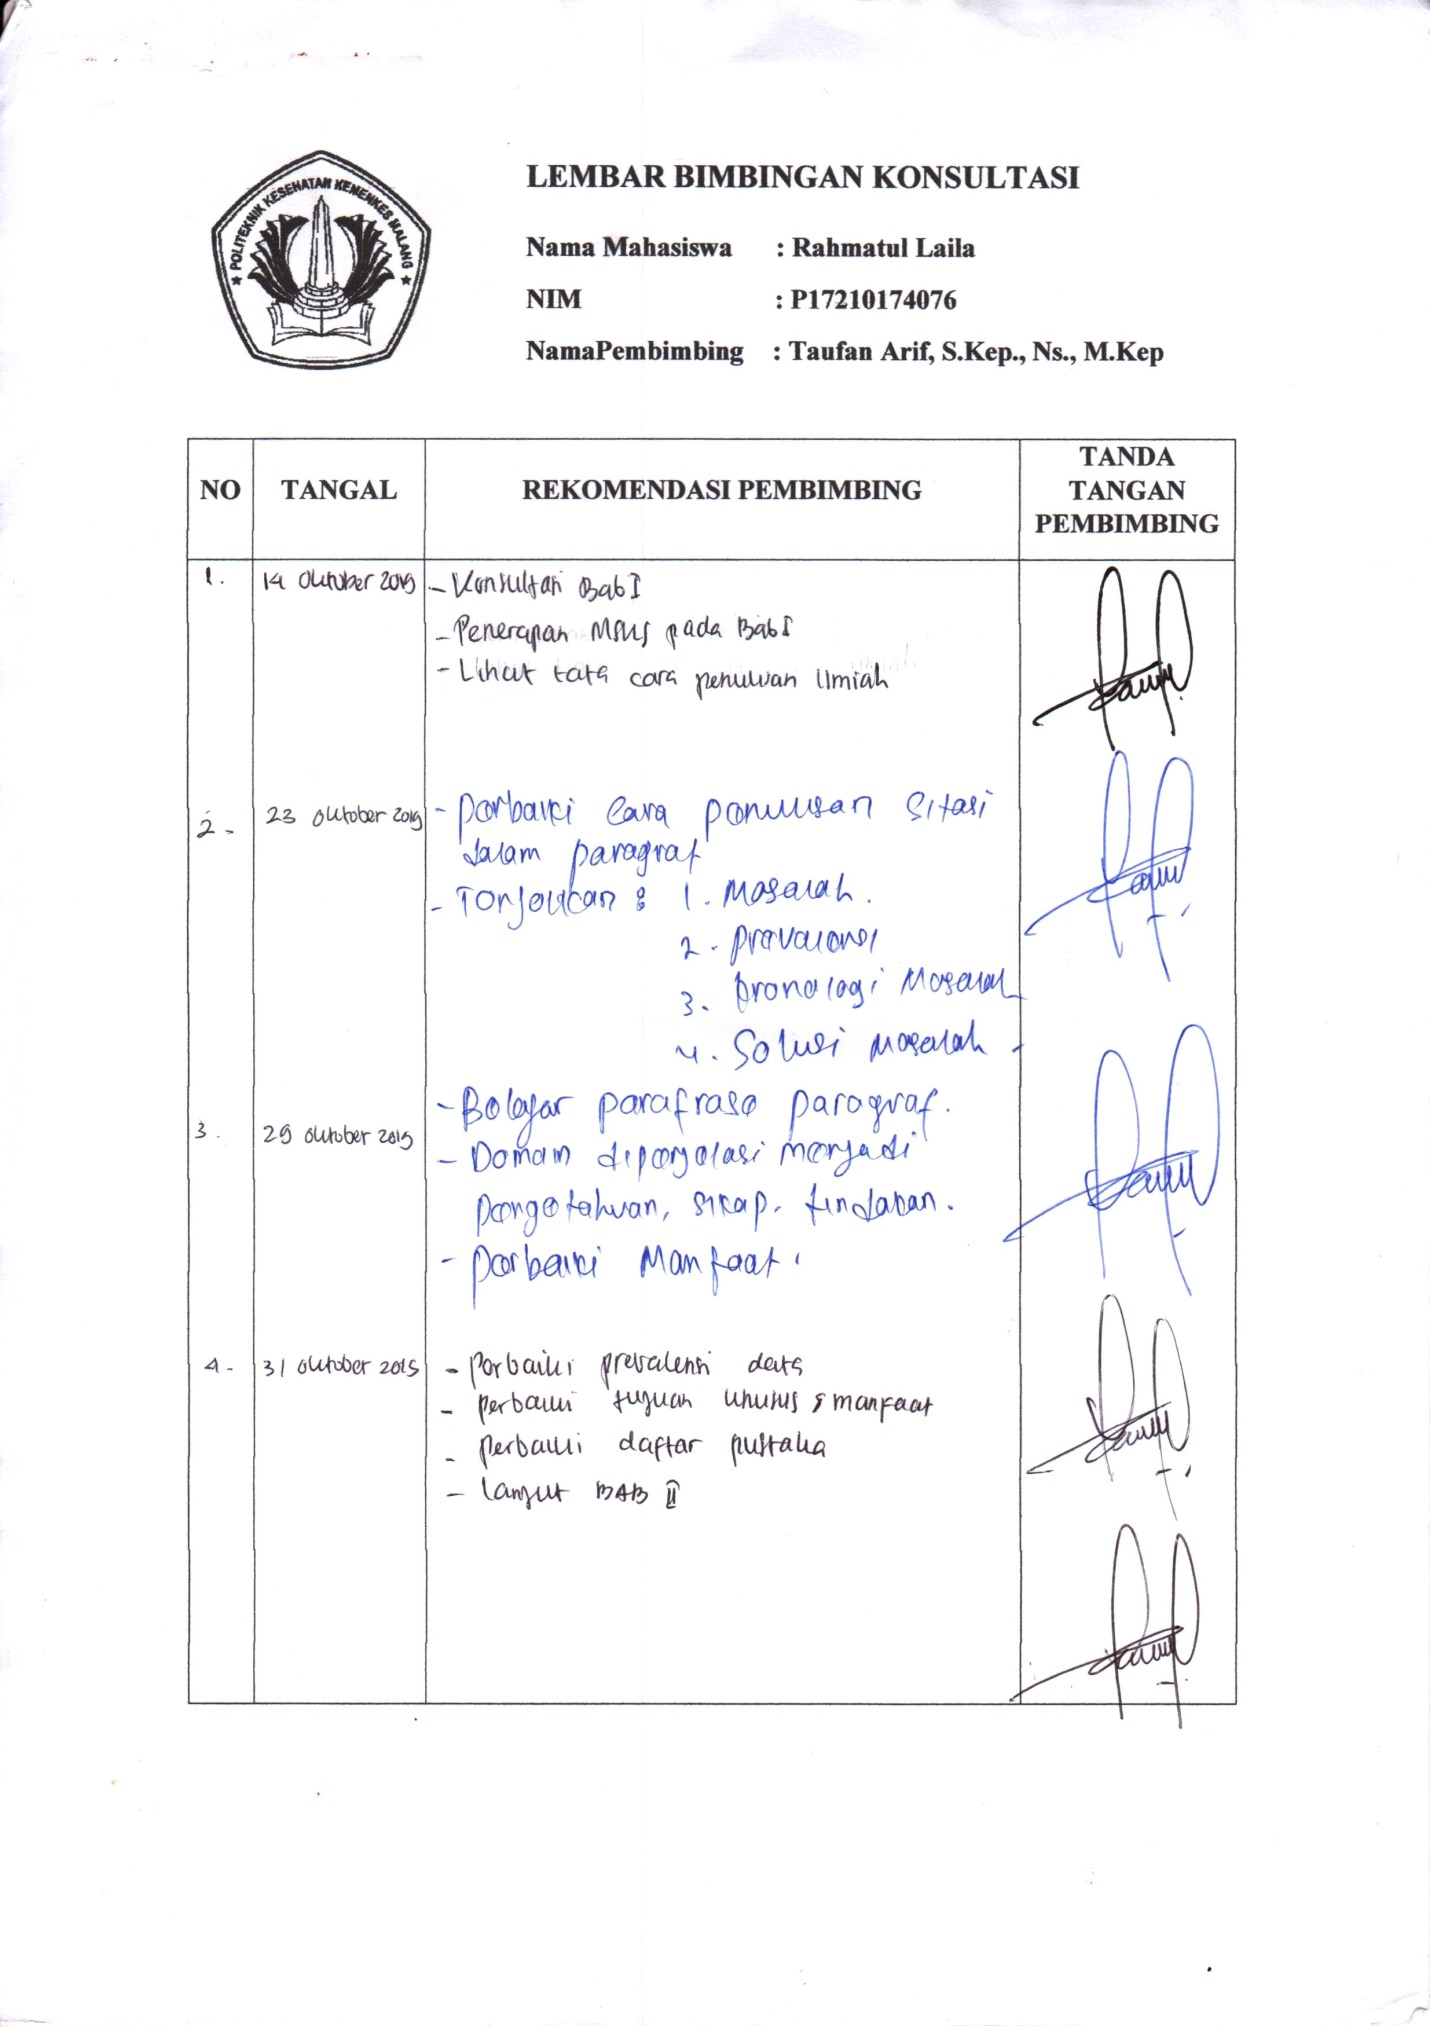 POLITEKNIK KESEHATAN KEMENKES MALANG
LEMBAR BIMBINGAN KONSULTASI
Nama Mahasiswa : Rahmatul Laila
NIM : P17210174076
NamaPembimbing : Taufan Arif, S.Kep., Ns., M.Kep
NO TANGAL REKOMENDASI PEMBIMBING TANDA TANGAN PEMBIMBING
1. 14 Oktober 2019 - Konsultasi Bab I
- Penerapan MSKS pada Bab I
- Lihat tata cara penulisan Ilmiah
2. 23 Oktober 2019 - perbaiki cara penulisan sitasi
dalam paragraf
- Tonjolkan : 1. Masalah.
2. prevalensi
3. kronologi Masalah
4. Solusi Masalah -
- Belajar parafrase paragraf.
3. 29 Oktober 2019 - Domain diperjelas menjadi
pengetahuan, sikap, tindakan.
- perbaiki Manfaat.
4. 31 Oktober 2019 - Perbaiki prevalensi data
- perbaiki tujuan khusus & manfaat
- perbaiki daftar pustaka
- lanjut BAB II